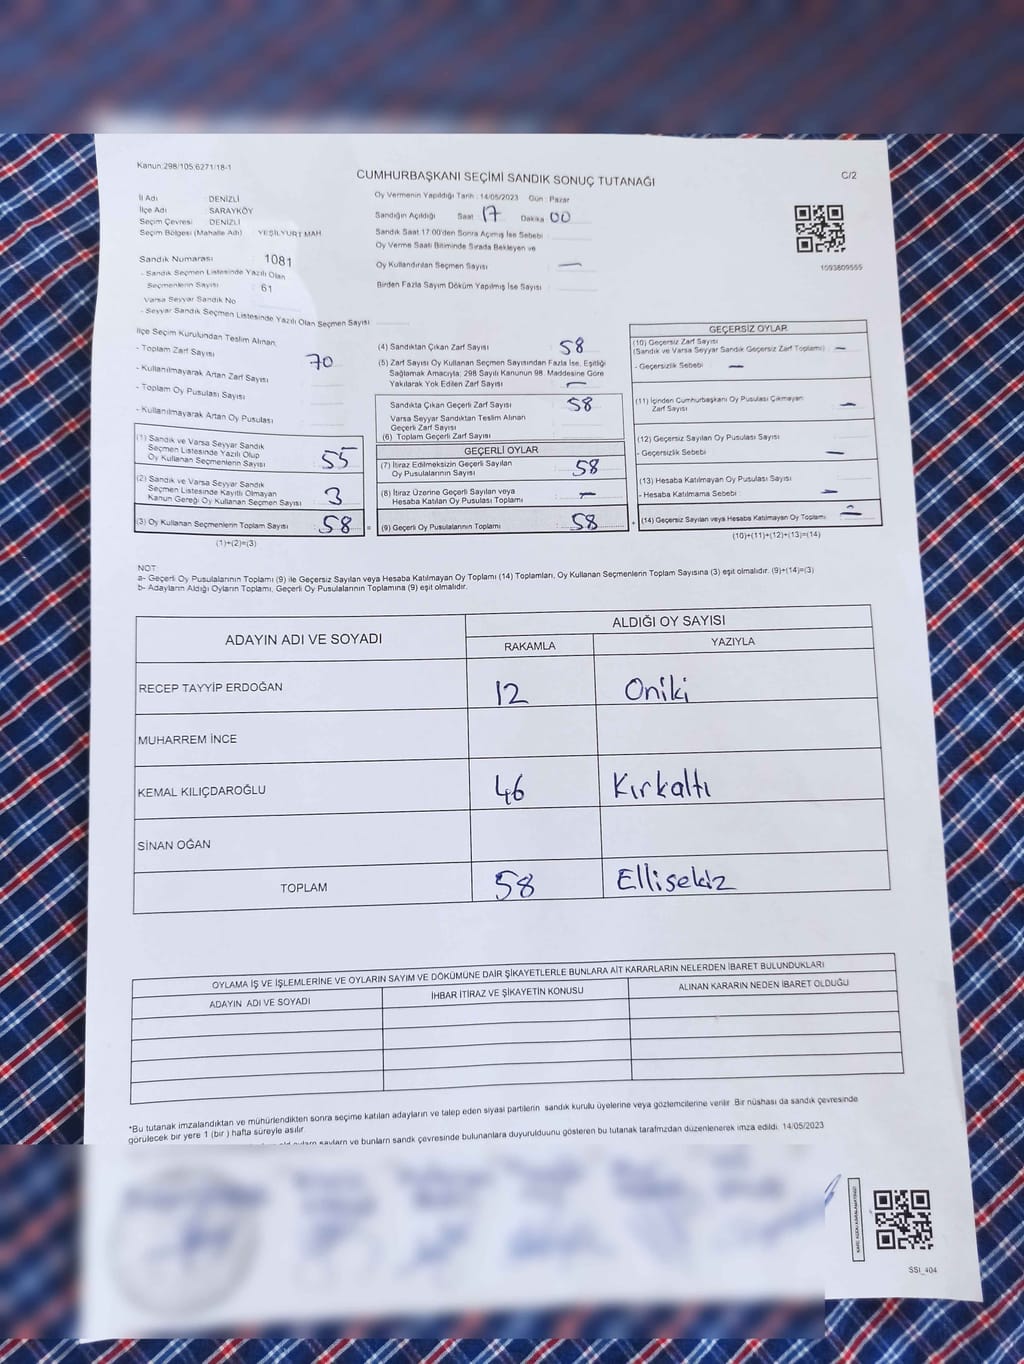 Kanun:298/105;6271/18-1
CUMHURBAŞKANI SEÇİMİ SANDIK SONUÇ TUTANAĞI
C/2
İl Adı DENİZLİ
İlçe Adı : SARAYKÖY
Seçim Çevresi : DENİZLİ
Seçim Bölgesi (Mahalle Adı) YEŞİLYURT MAH.
Sandık Numarası : 1081
- Sandık Seçmen Listesinde Yazılı Olan
Seçmenlerin Sayısı : 61
Varsa Seyyar Sandık No
- Seyyar Sandık Seçmen Listesinde Yazılı Olan Seçmen Sayısı
Oy Vermenin Yapıldığı Tarih : 14/05/2023 Gün : Pazar
Sandığın Açıldığı Saat 17 Dakika 00
Sandık Saat 17:00'den Sonra Açımış İse Sebebi :
Oy Verme Saati Bitiminde Sırada Bekleyen ve
Oy Kullandırılan Seçmen Sayısı —
Birden Fazla Sayım Döküm Yapılmış İse Sayısı :
1093809555
İlçe Seçim Kurulundan Teslim Alınan;
- Toplam Zarf Sayısı 70
- Kullanılmayarak Artan Zarf Sayısı
- Toplam Oy Pusulası Sayısı
- Kullanılmayarak Artan Oy Pusulası
(1) Sandık ve Varsa Seyyar Sandık
Seçmen Listesinde Yazılı Olup
Oy Kullanan Seçmenlerin Sayısı 55
(2) Sandık ve Varsa Seyyar Sandık
Seçmen Listesinde Kayıtlı Olmayan
Kanun Gereği Oy Kullanan Seçmen Sayısı 3
(3) Oy Kullanan Seçmenlerin Toplam Sayısı 58 =
(1)+(2)=(3)
(4) Sandıktan Çıkan Zarf Sayısı 58
(5) Zarf Sayısı Oy Kullanan Seçmen Sayısından Fazla İse, Eşitliği
Sağlamak Amacıyla; 298 Sayılı Kanunun 98. Maddesine Göre
Yakılarak Yok Edilen Zarf Sayısı —
Sandıkta Çıkan Geçerli Zarf Sayısı 58
Varsa Seyyar Sandıktan Teslim Alınan
Geçerli Zarf Sayısı
(6) Toplam Geçerli Zarf Sayısı
GEÇERLİ OYLAR
(7) İtiraz Edilmeksizin Geçerli Sayılan
Oy Pusulalarının Sayısı 58
(8) İtiraz Üzerine Geçerli Sayılan veya
Hesaba Katılan Oy Pusulası Toplamı —
(9) Geçerli Oy Pusulalarının Toplamı 58 +
GEÇERSİZ OYLAR
(10) Geçersiz Zarf Sayısı
(Sandık ve Varsa Seyyar Sandık Geçersiz Zarf Toplamı) —
- Geçersizlik Sebebi —
(11) İçinden Cumhurbaşkanı Oy Pusulası Çıkmayan
Zarf Sayısı —
(12) Geçersiz Sayılan Oy Pusulası Sayısı
- Geçersizlik Sebebi —
(13) Hesaba Katılmayan Oy Pusulası Sayısı
- Hesaba Katılmama Sebebi —
(14) Geçersiz Sayılan veya Hesaba Katılmayan Oy Toplamı
(10)+(11)+(12)+(13)=(14)
NOT:
a- Geçerli Oy Pusulalarının Toplamı (9) ile Geçersiz Sayılan veya Hesaba Katılmayan Oy Toplamı (14) Toplamları, Oy Kullanan Seçmenlerin Toplam Sayısına (3) eşit olmalıdır. (9)+(14)=(3)
b- Adayların Aldığı Oyların Toplamı, Geçerli Oy Pusulalarının Toplamına (9) eşit olmalıdır.
ADAYIN ADI VE SOYADI ALDIĞI OY SAYISI
RAKAMLA YAZIYLA
RECEP TAYYİP ERDOĞAN 12 Oniki
MUHARREM İNCE
KEMAL KILIÇDAROĞLU 46 Kırkaltı
SİNAN OĞAN
TOPLAM 58 Ellisekiz
OYLAMA İŞ VE İŞLEMLERİNE VE OYLARIN SAYIM VE DÖKÜMÜNE DAİR ŞİKAYETLERLE BUNLARA AİT KARARLARIN NELERDEN İBARET BULUNDUKLARI
ADAYIN ADI VE SOYADI İHBAR İTİRAZ VE ŞİKAYETİN KONUSU ALINAN KARARIN NEDEN İBARET OLDUĞU
*Bu tutanak imzalandıktan ve mühürlendikten sonra seçime katılan adayların ve talep eden siyasi partilerin sandık kurulu üyelerine veya gözlemcilerine verilir. Bir nüshası da sandık çevresinde
görülecek bir yere 1 (bir) hafta süreyle asılır.
ve bunların sandık çevresinde bulunanlara duyurulduunu gösteren bu tutanak tarafımızdan düzenlenerek imza edildi. 14/05/2023
SSI_404